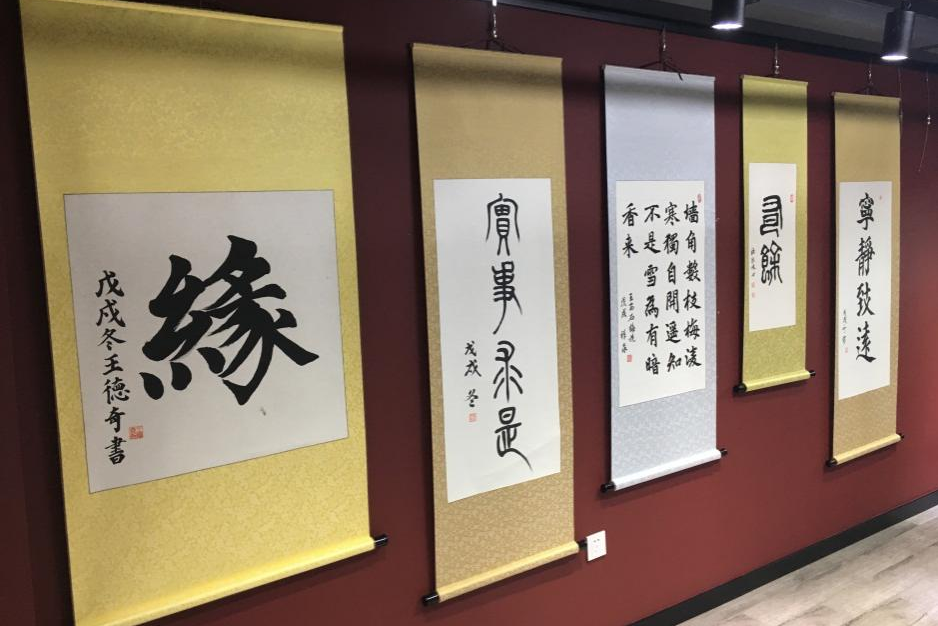 緣
戊戌冬王德奇書
實事求是
戊戌 冬
墙角數枝梅凌
寒獨自開遥知
不是雪為有暗
香来
王安石梅花
有餘
寧靜致遠